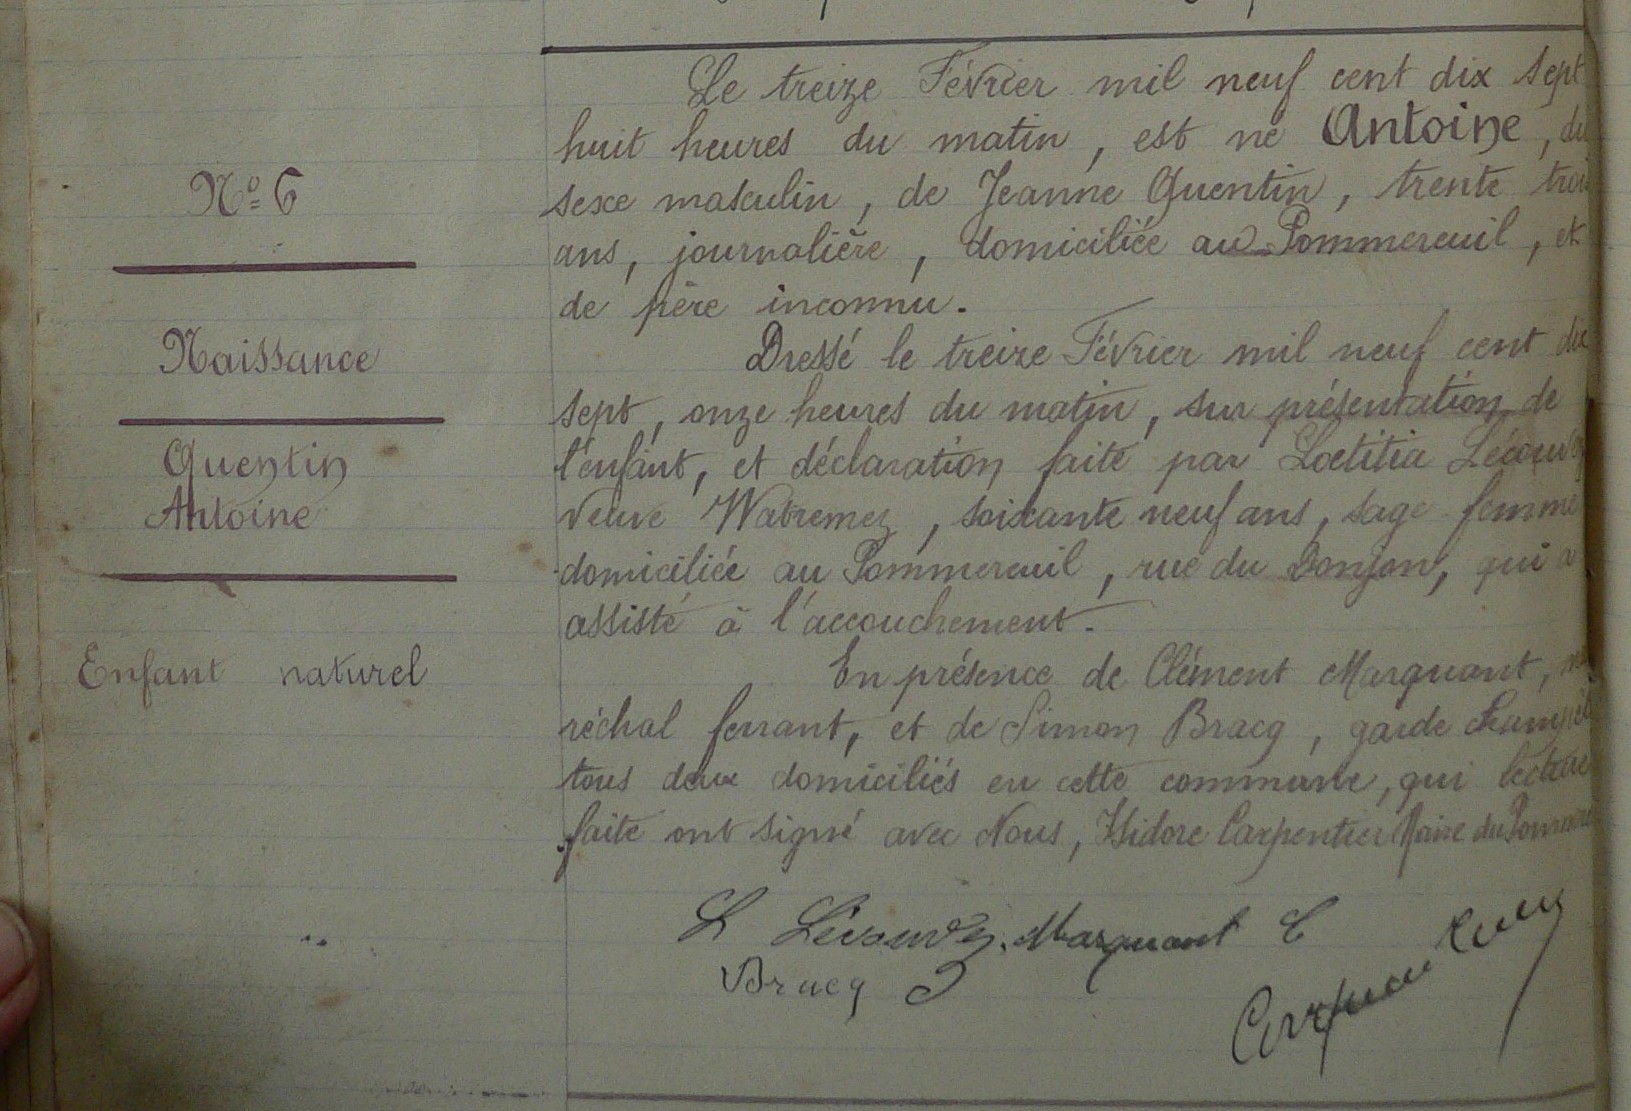 Le treize Février mil neuf cent dix sept
huit heures du matin, est né Antoine, du
sexe masculin, de Jeanne Quentin, trente trois
ans, journalière, domiciliée au Pommereuil, et
de père inconnu.
Dressé le treize Février mil neuf cent dix
sept, onze heures du matin, sur présentation de
l'enfant, et déclaration faite par Loetitia Lécouvez
veuve Watremez, soixante neuf ans, sage femme
domiciliée au Pommereuil, rue du Donjon, qui a
assisté à l'accouchement.
En présence de Clément Marquant, ma
réchal ferrant, et de Simon Bracq, garde champêt
tous deux domiciliés en cette commune, qui lecture
faite ont signé avec Nous, Isidore Carpentier Maire du Pommere
Nº 6
Naissance
Quentin
Antoine
Enfant naturel
L Lécouvez Marquant C
Bracq